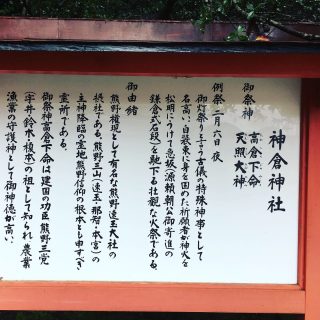 神倉神社
御祭神
高倉下命
天照大神
例祭 二月六日夜
御灯祭りと言う古儀の特殊神事として
名高い、白装束に身を固めた祈願者が神火を
松明にうけて急坂(源頼朝公御寄進の
鎌倉式石段)を馳下る壮観な火祭である。
御由緒
熊野権現として有名な熊野速玉大社の
摂社である。熊野三山(速玉・那智・本宮)の
主神降臨の霊地、熊野信仰の根本とも申すべき
霊所である。
御祭神高倉下命は建国の功臣、熊野三党
(宇井・鈴木・榎本)の祖として知られ、農業
漁業の守護神として御神徳が高い